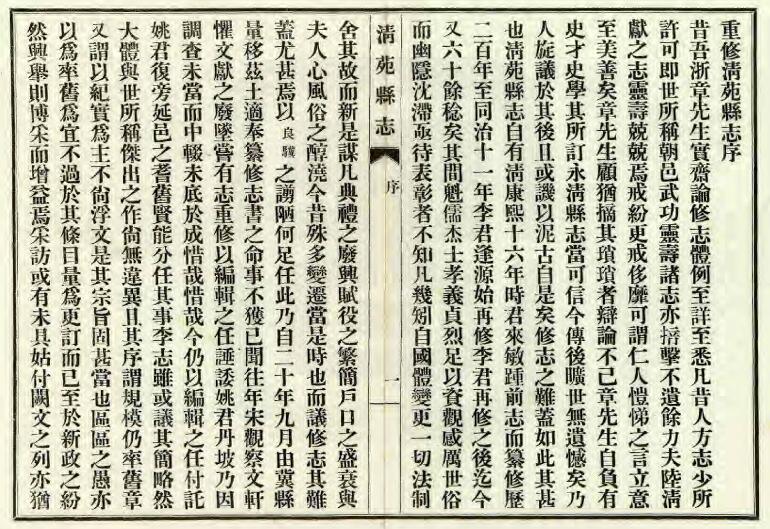 重修清苑縣志序
昔吾浙章先生實齋論修志體例至詳至悉凡昔人方志少所
許可即世所稱朝邑武功靈壽諸志亦掊擊不遺餘力夫陸清
獻之志靈壽兢兢焉戒紛更戒侈靡可謂仁人愷悌之言立意
至美善矣章先生顧猶摘其瑣瑣者辯論不已章先生自負有
史才史學其所訂永清縣志當可信今傳後曠世無遺憾矣乃
人旋議於其後且或譏以泥古自是矣修志之難蓋如此其甚
也清苑縣志自有清康熙十六年時君來敏踵前志而纂修歷
二百年至同治十一年李君逢源始再修李君再修之後迄今
又六十餘稔矣其間魁儒杰士孝義貞烈足以資觀感厲世俗
而幽隱沈滯亟待表彰者不知凡幾矧自國體變更一切法制
清苑縣志
序
一
舍其故而新是謀凡典禮之廢興賦役之繁簡戶口之盛衰與
夫人心風俗之醇澆今昔殊多變遷當是時也而議修志其難
蓋尤甚焉以良驥之謭陋何足任此乃自二十年九月由冀縣
量移茲土適奉纂修志書之命事不獲已聞往年宋觀察文軒
懼文獻之廢墜嘗有志重修以編輯之任諈諉姚君丹坡乃因
調查未當而中輟未底於成惜哉惜哉今仍以編輯之任付託
姚君復旁延邑之耆舊賢能分任其事李志雖或議其簡略然
大體與世所稱傑出之作尚無違異且其序謂規模仍率舊章
又謂以紀實爲主不尚浮文是其宗旨固甚當也區區之愚亦
以爲率舊爲宜不過於其條目量爲更訂而已至於新政之紛
然興舉則博采而增益焉采訪或有未具姑付闕文之列亦猶